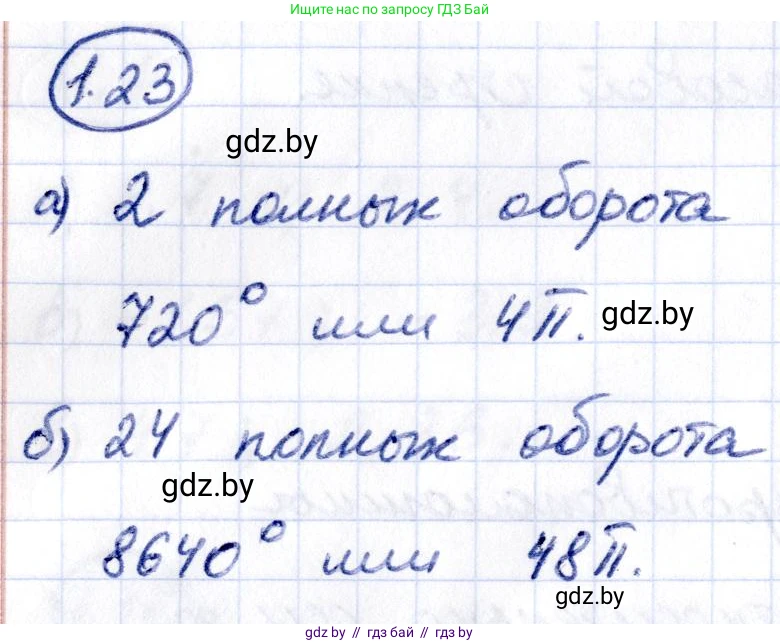 Ищите нас по запросу ГДЗ Бай
1.23
gdz.by
а) 2 полных оборота
720° или 4π. gdz.by
б) 24 полных оборота
gdz.by
8640° или 48π.
gdz.by
gdz.by // гдз бай // gdz.by